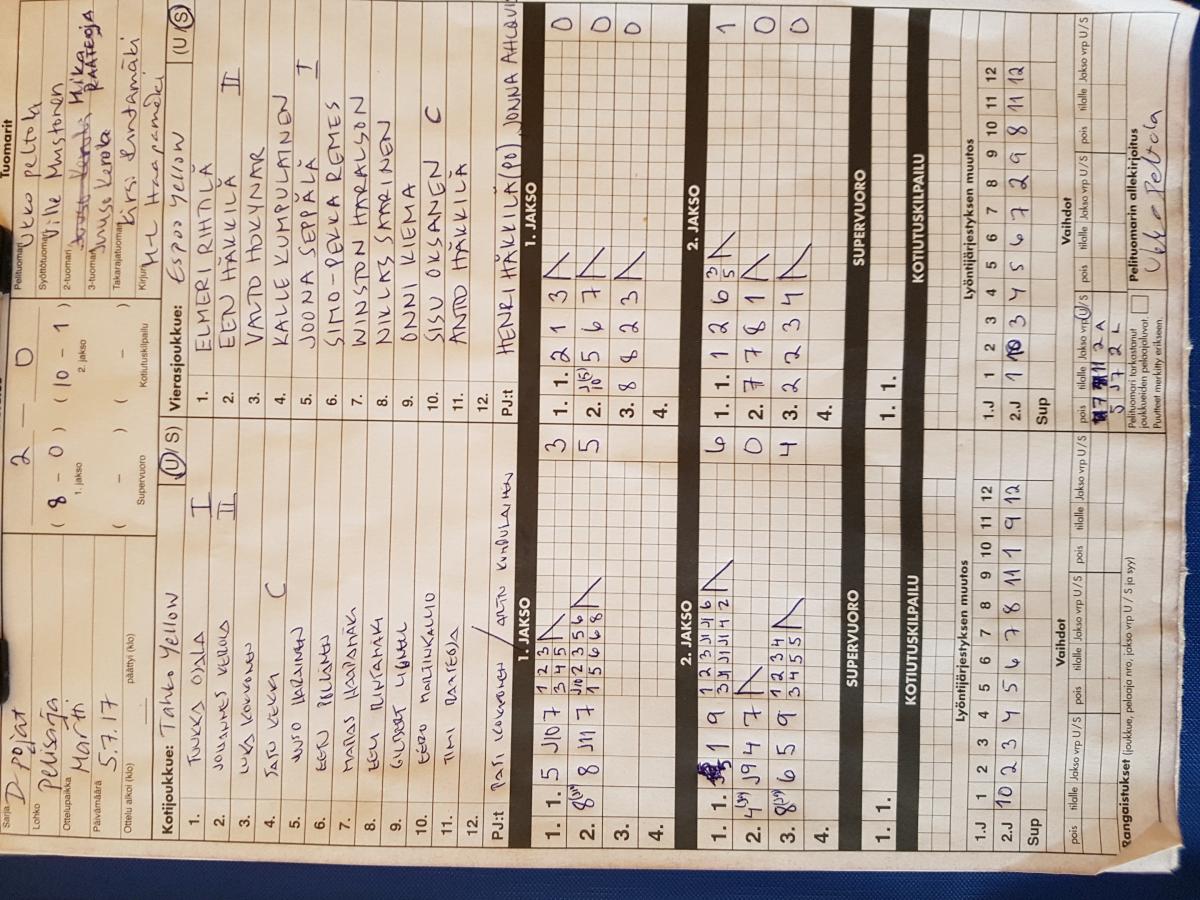 Sarja D-pojat
Lohko Pelisarja
Ottelupaikka Martti
Päivämäärä 5.7.17
Ottelu alkoi (klo) päättyi (klo)
2 — 0
( 8 - 0 ) ( 10 - 1 )
1. jakso 2. jakso
( - ) ( - )
Supervuoro Kotiutuskilpailu
Tuomarit
Pelituomari Ukko Peltola
Syöttötuomari Ville Mustonen
2-tuomari Mika Rääteoja
3-tuomari Juuso Kerola
Takarajatuomari Kirsi Rintamäki
Kirjuri M-L Haapamäki
Kotijoukkue: Tahko Yellow (U/S)
1. TUUKKA OJALA I
2. JOHANNES KEROLA II
3. LUKA KOKKONEN
4. SATU KEKKI C
5. JUUSO HARJUNEN
6. EETU PÖLLÄNEN
7. MATIAS HAAPAMÄKI
8. EELI RINTAMÄKI
9. GILBERT
10. EERO MARTINKALLIO
11. TIMI RÄÄTEOJA
PJ:t PATI KOKKONEN / ARTTU KUNDULAINEN
Vierasjoukkue: Espoo Yellow (U/S)
1. ELMERI RIHTILÄ
2. EEN HÄKKILÄ II
3. VALTO HOKYNAR
4. KALLE KUMPULAINEN
5. JOONA SEPPÄLÄ I
6. SIMO-PEKKA REMES
7. WINSTON HARALSON
8. NIKLAS SAARINEN
9. ONNI KIEMA
10. SISU OKSANEN C
11. ANTO HÄKKILÄ
12.
PJ:t HENRI HÄKKILÄ (PO) JONNA AHLQVIS
1. JAKSO
1. 1. 5 J10 7 1 2 3 3
3 4 5
2. 8(J11) 8 J11 7 1 2 3 5 6 5
1 5 6 6 8
3.
4.
1. JAKSO
1. 1. 2 1 3 0
2. J(5) 10 5 6 7 0
3. 8 8 2 3 0
4.
2. JAKSO
1. 1. 1 9 1 2 3 6
2. J9 4 7 0
3. 6 5 9 1 2 3 4 4
3 4 5 5
4.
2. JAKSO
1. 1. 1 2 6 3 1
5
2. 7 7 8 1 0
3. 2 2 3 4 0
4.
SUPERVUORO
1. 1.
SUPERVUORO
1. 1.
KOTIUTUSKILPAILU
KOTIUTUSKILPAILU
Lyöntijärjestyksen muutos
1.J 1 2 3 4 5 6 7 8 9 10 11 12
2.J 10 2 3 4 5 6 7 8 11 1 9 12
Sup
Lyöntijärjestyksen muutos
1.J 1 2 3 4 5 6 7 8 9 10 11 12
2.J 1 10 3 4 5 6 7 2 9 8 11 12
Sup
Vaihdot
pois tilalle Jakso vrp U / S pois tilalle Jakso vrp U / S pois tilalle Jakso vrp U / S
Vaihdot
pois tilalle Jakso vrp U / S pois tilalle Jakso vrp U / S pois tilalle Jakso vrp U / S
5 J7 2 L
Rangaistukset (joukkue, pelaaja nro, jakso, vrp U / S ja syy)
Pelituomari tarkastanut
joukkueiden pelaajaluvat.
Puutteet merkitty erikseen.
Pelituomarin allekirjoitus
Ukko Peltola